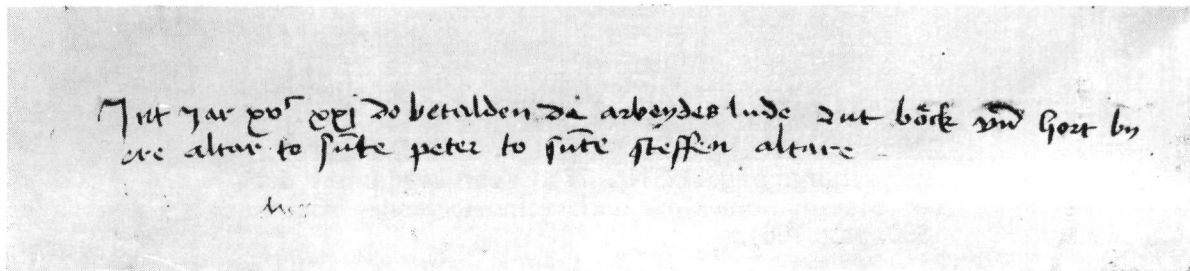 Int Jar xvᶜ xxj do betalden de arbeydes lude dut bo̅ck vn̅d hort by
ere altar to su̅te peter to su̅te steffen altare